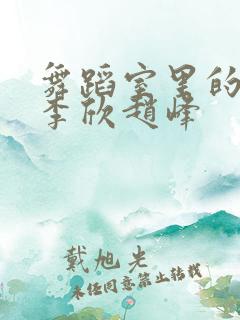 舞蹈室里的
李欣赵峰
戴旭光
未经同意禁止转载